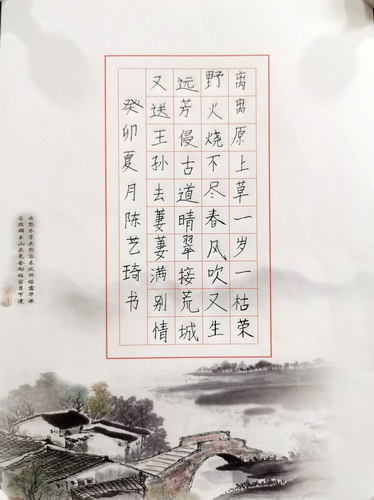 离离原上草一岁一枯荣
野火烧不尽春风吹又生
远芳侵古道晴翠接荒城
又送王孙去萋萋满别情
癸卯夏月陈艺琦书